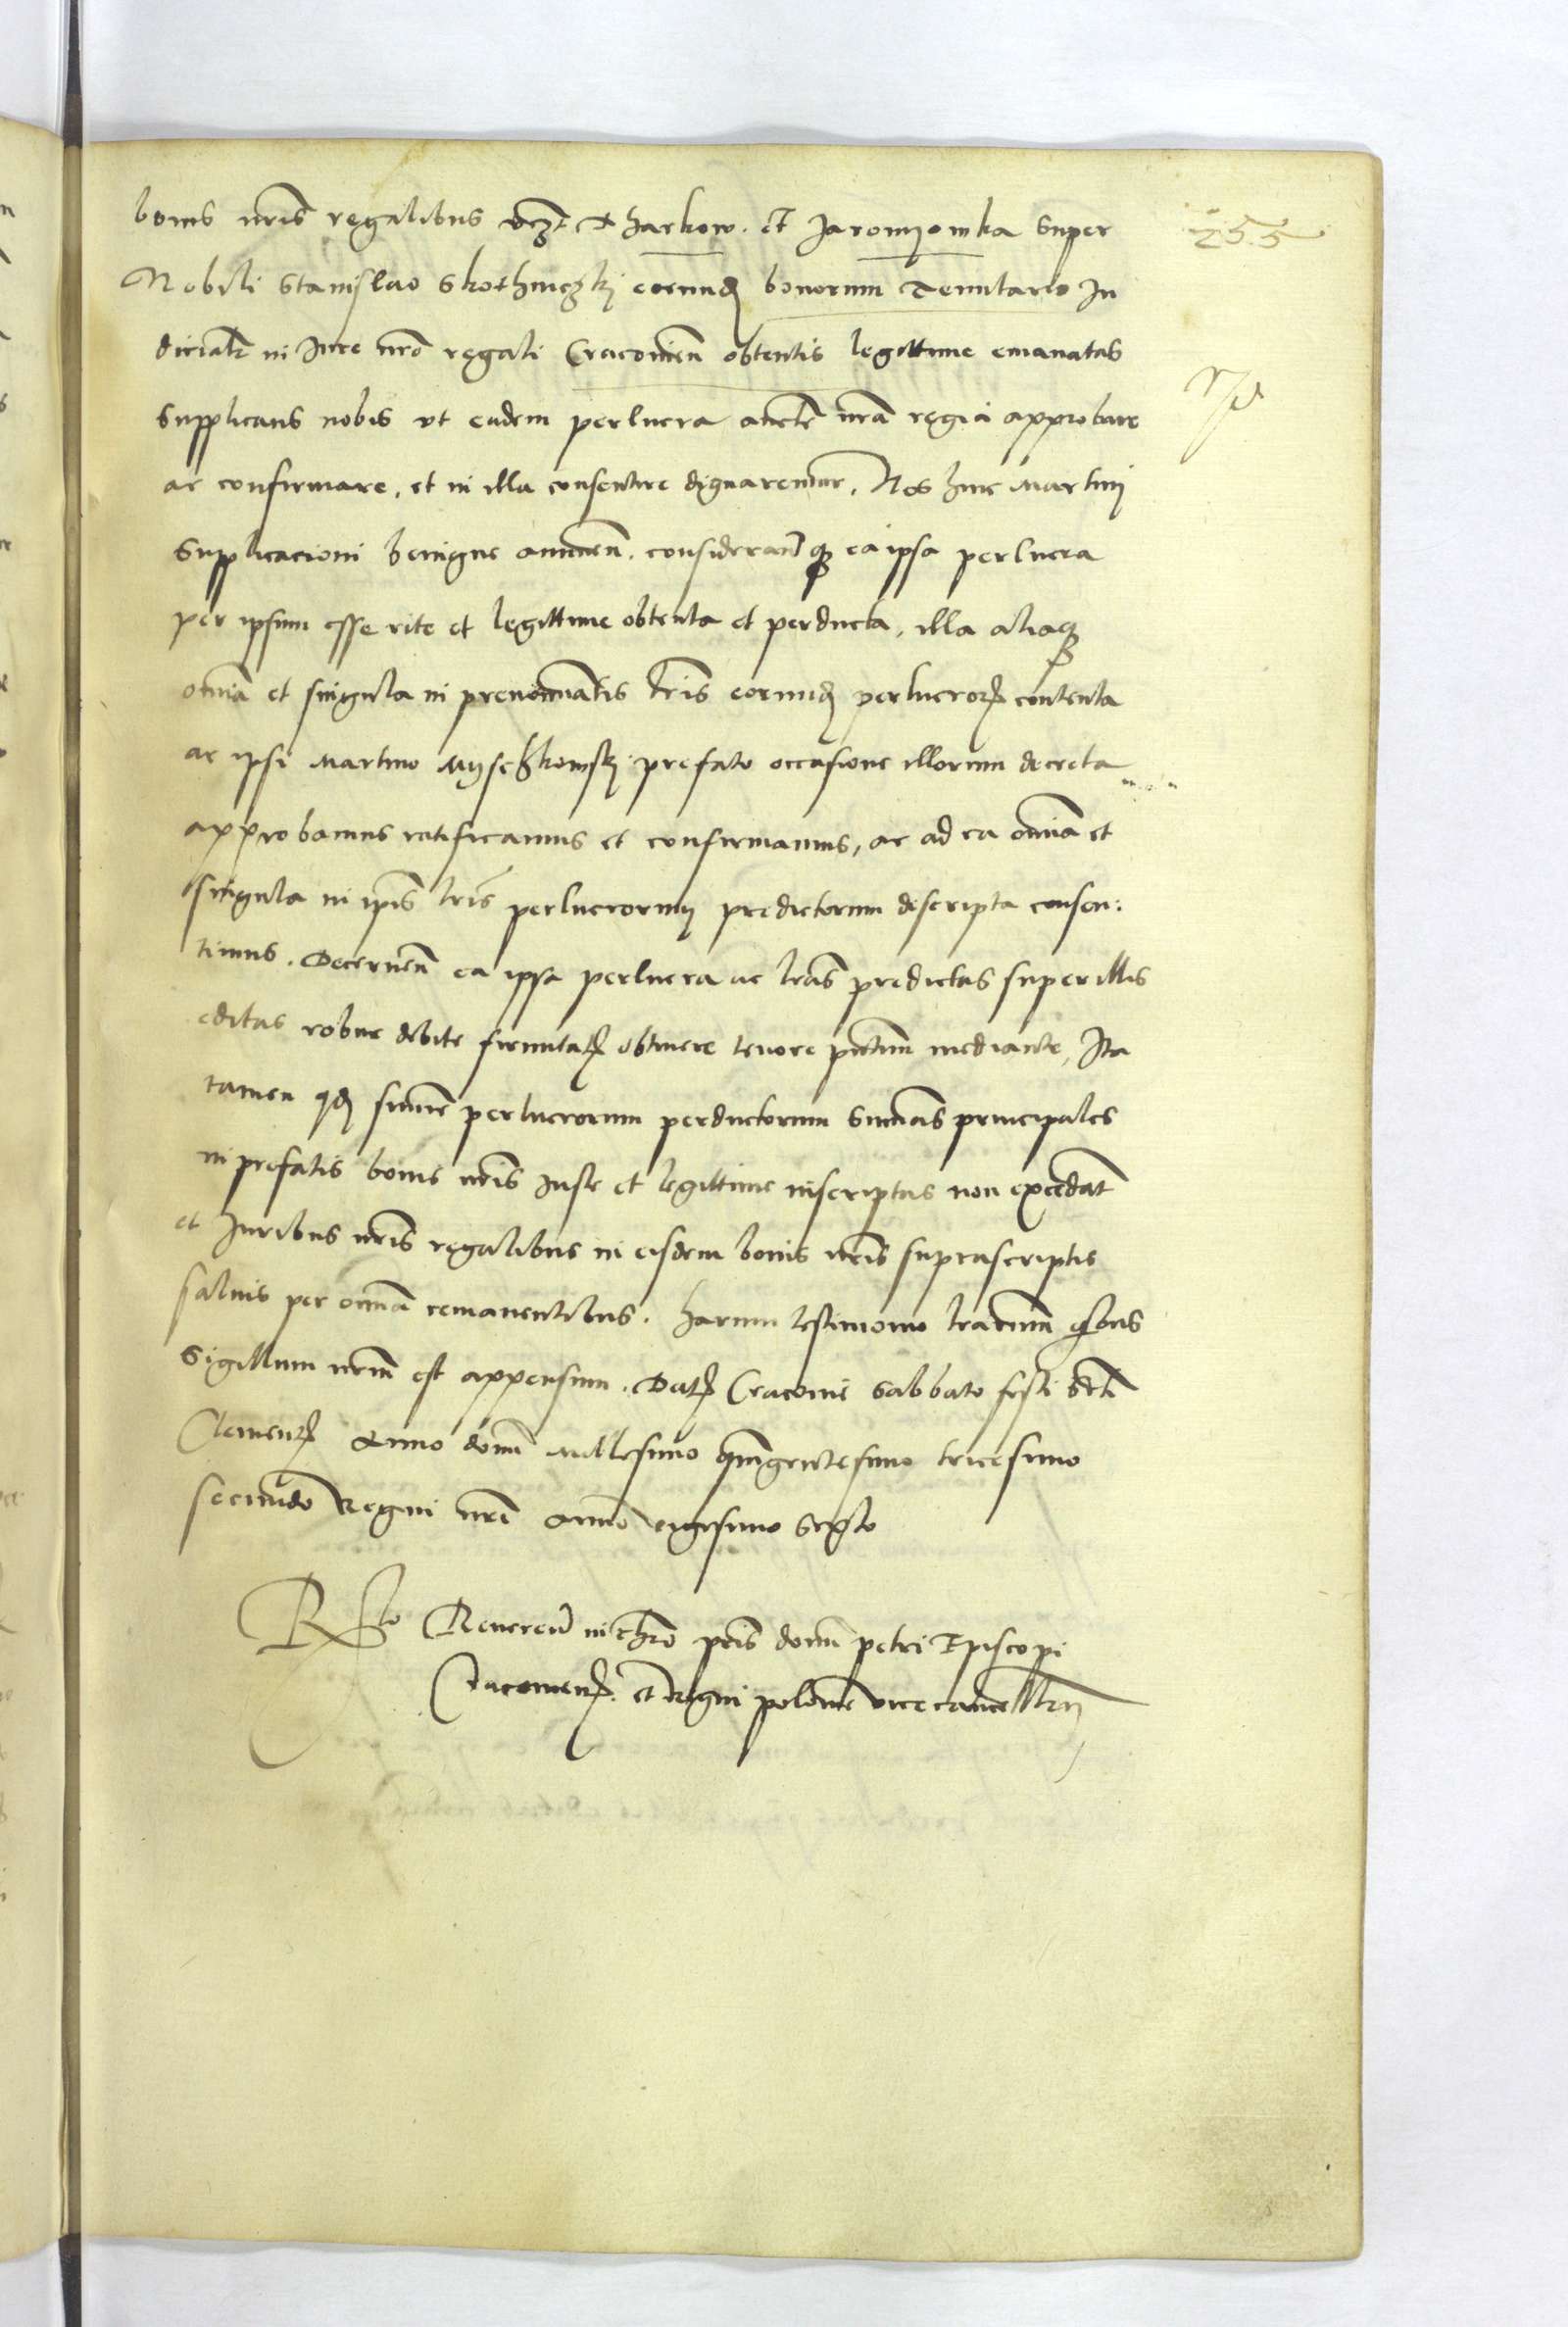 255
bonis nris regalibus vczt Tharkow. et Jaromyowka super
Nobili Stanislao Skothniczky eorund bonorum Tenutario Ju
dicialr in Jure nro regali Cracovien obtentis legittime emanatas
supplicans nobis vt eadem perlucra aucte nra regia approbare
ac confirmare, et in illa consentire dignaremur. Nos huic Martini
supplicacioni benigne annuen. considerand q ea ipsa perlucra
per ipsum esse rite et legittime obtenta et perducta, illa aliaq
omnia et singula in prenominatis lris eorund perlucror contenta
ac ipsi Martino Myschkowsky prefato occasione illorum decreta
approbamus ratificamus et confirmamus, ac ad ea omnia et
singula in ipis lris perlucrorum predictorum descripta consen:
timus. Decernen ea ipsa perlucra ac lras predictas super illis
editas robur debite firmitat obtinere tenore pntium mediante, Ita
tamen qd summe perlucrorum perductorum summas principales
in prefatis bonis nris juste et legittime inscriptas non excedat
et Juribus nris regalibus in eisdem bonis nris suprascriptis
salvis per omnia remanentibus. harum testimonio lrarum quibus
Sigillum nrum est appensum. Dat Cracovie Sabbato festi scti
Clement Anno domi Millesimo quingentesimo tricesimo
secundo Regni nri anno vigesimo Sexto
Rto Reverend in chro pris domi petri Episcopi
Cracovien. et Regni polonie vicecancellary